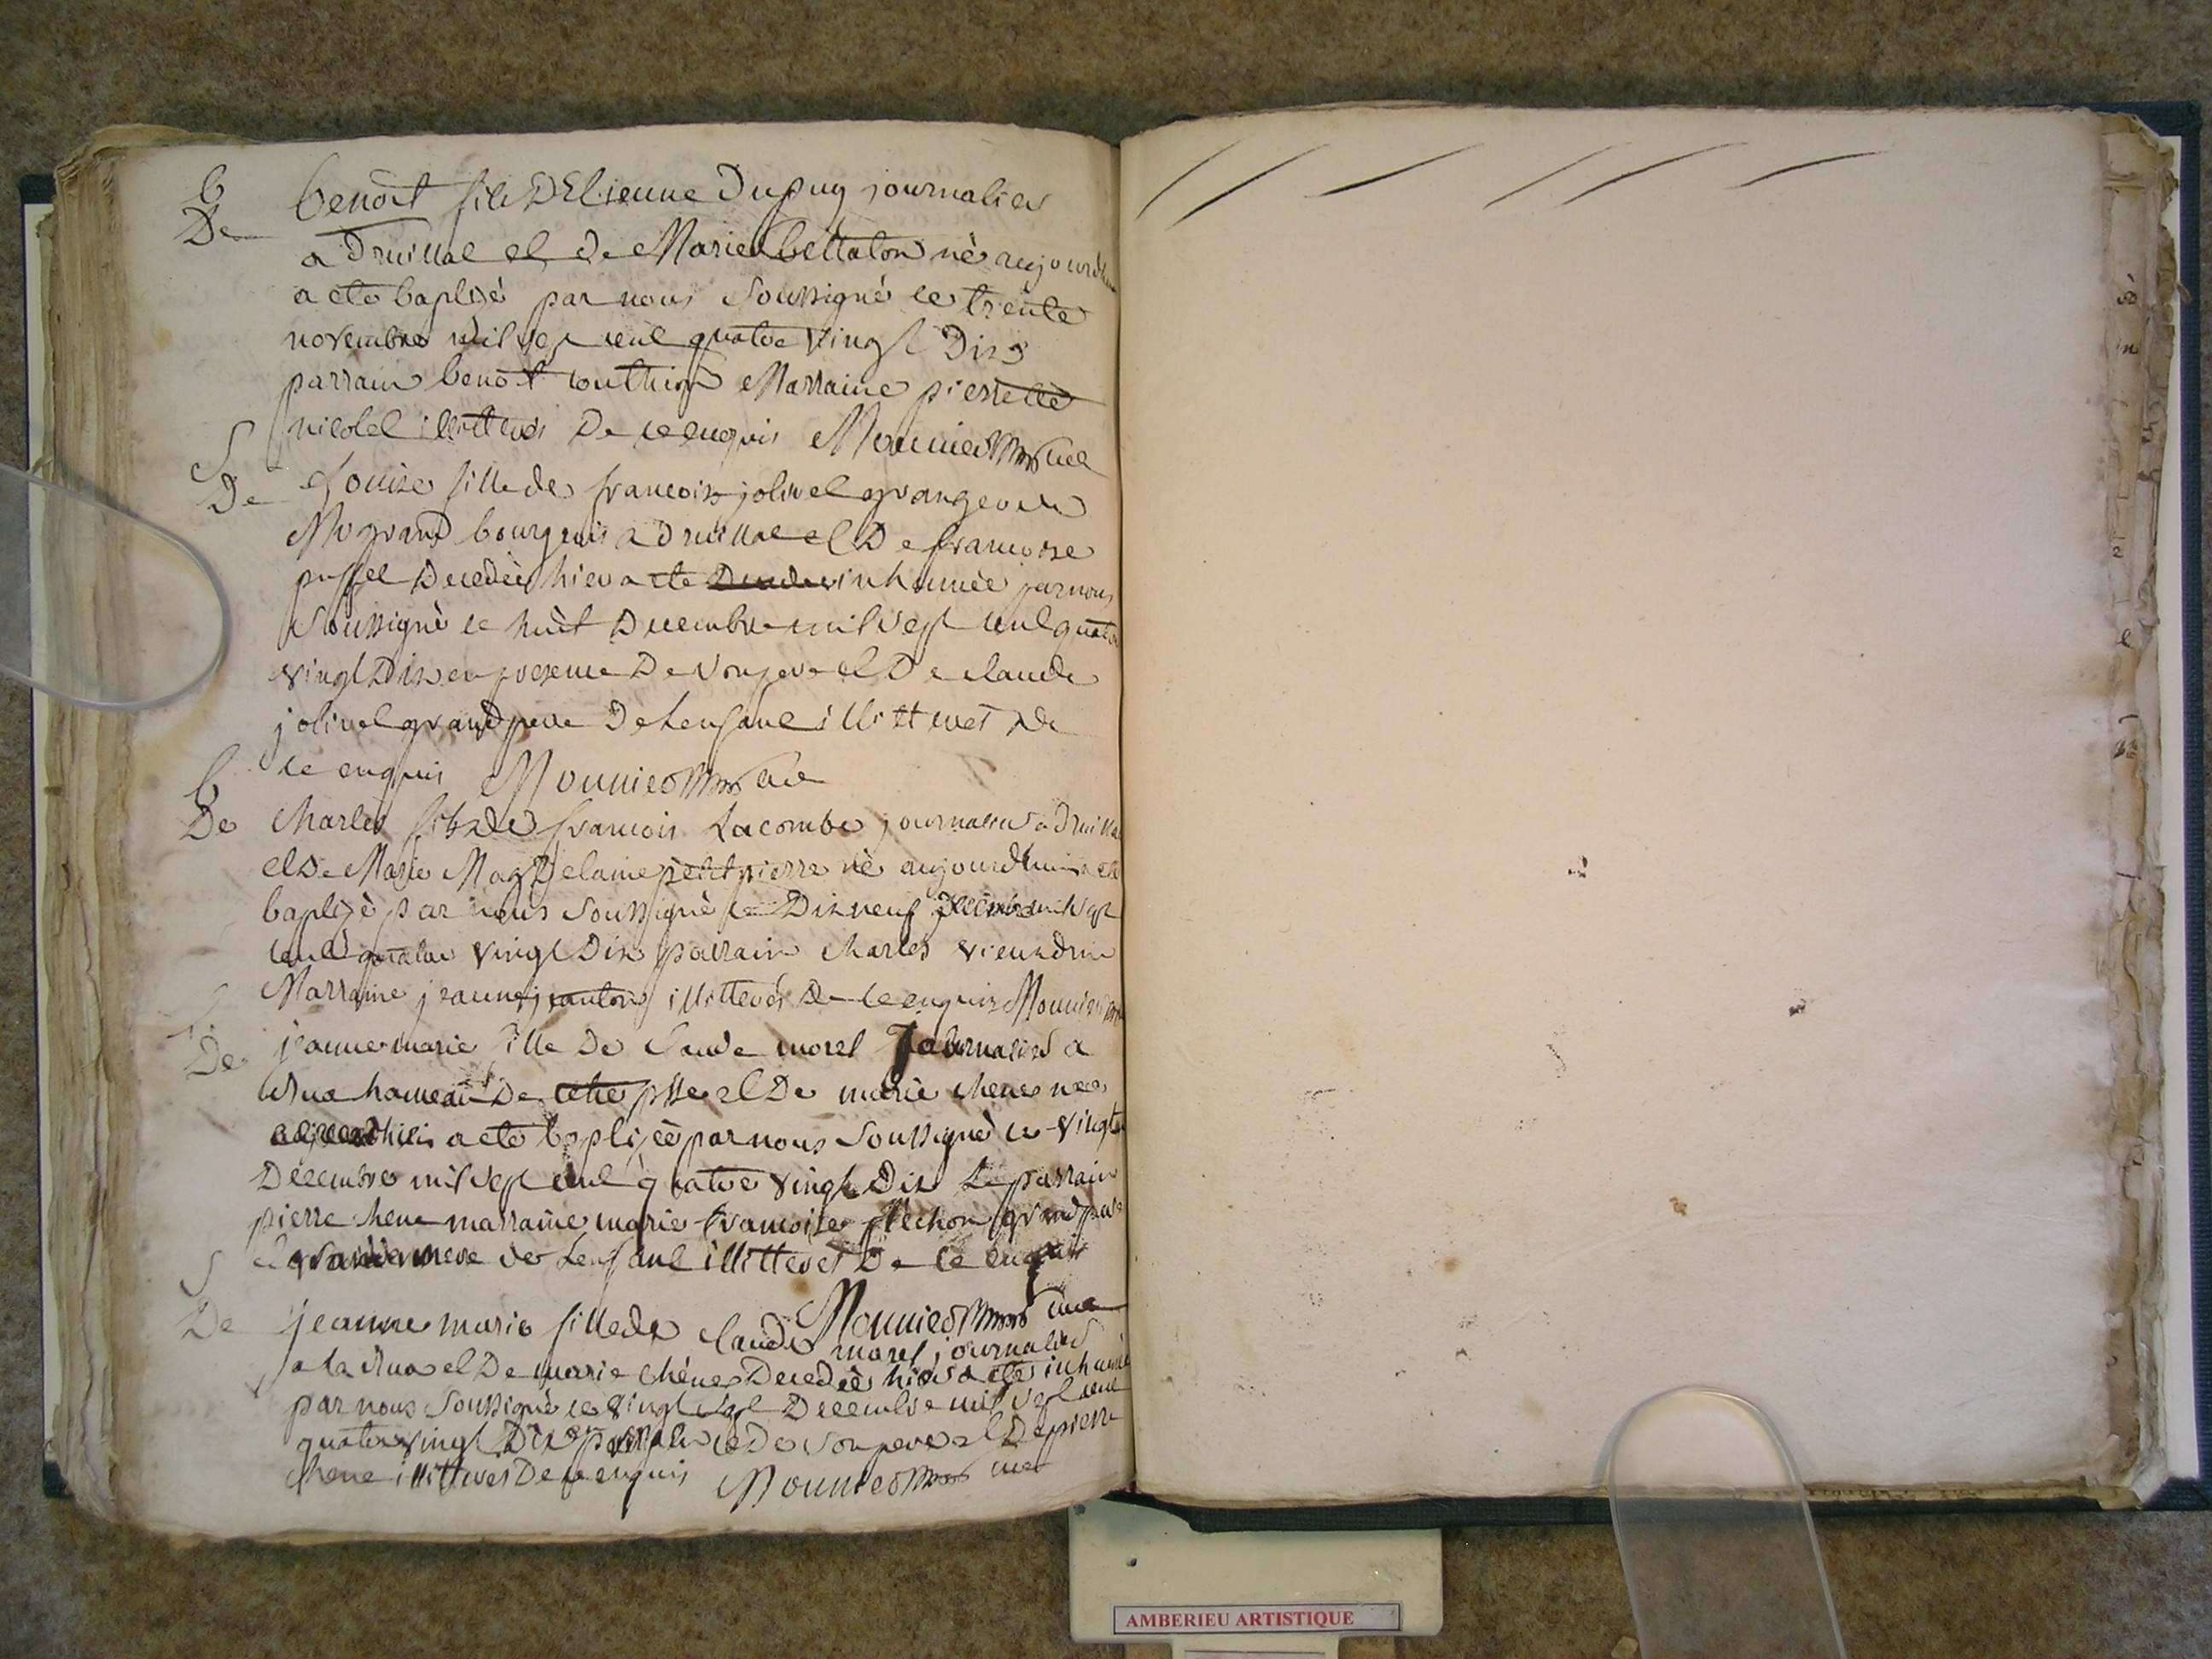 b
De
benoit fils D Etienne Dupuy journalier
a Druillat et de Marie bettaton né aujourdhui
a eté baptisé par nous Soussigné ce trente
novembre mil sept cent quatre vingt Dix
parrain benoit Marraine pierrette
nicolet illitterés De ce enquis Mounier cure
S
De
Louise fille de francois jolivet granger de
Mr grand bourgeois a Druillat et De francoise
Decedée hier a ete inhumée par nous
Soussigné ce huit Decembre mil sept cent quatre
vingt Dix en presence De son pere et De claude
jolivet grand pere De Lenfant illitterés De
ce enquis Mounier cure
b
De
charles fils de francois Lacombe journalier a Druillat
et De Marie Magdelaine petit pierre né aujourdhui a eté
baptisé par nous Soussigné ce Dix neuf Decembre mil sept
cent quatre vingt Dix parrain charles
Marraine jeanne illitterés De ce enquis Mounier
De
jeanne marie fille De Claude morel Journalier a
hameau De cette psse et De marie chene née
aujourdhui a eté baptisée par nous Soussigné ce vingt
Decembre mil sept cent quatre vingt Dix Le parrain
pierre chene marraine marie francoise grand pere
et grande mere de Lenfant illitterés De ce enquis
Mounier cure
S
De
jeanne marie fille de claude morel journalier
a la et De marie chene Decedée hier a eté inhumée
par nous Soussigné ce vingt sept Decembre mil sept cent
quatre vingt Dix en presence De son pere et De pierre
chene illitterés De ce enquis Mounier cure
AMBERIEU ARTISTIQUE